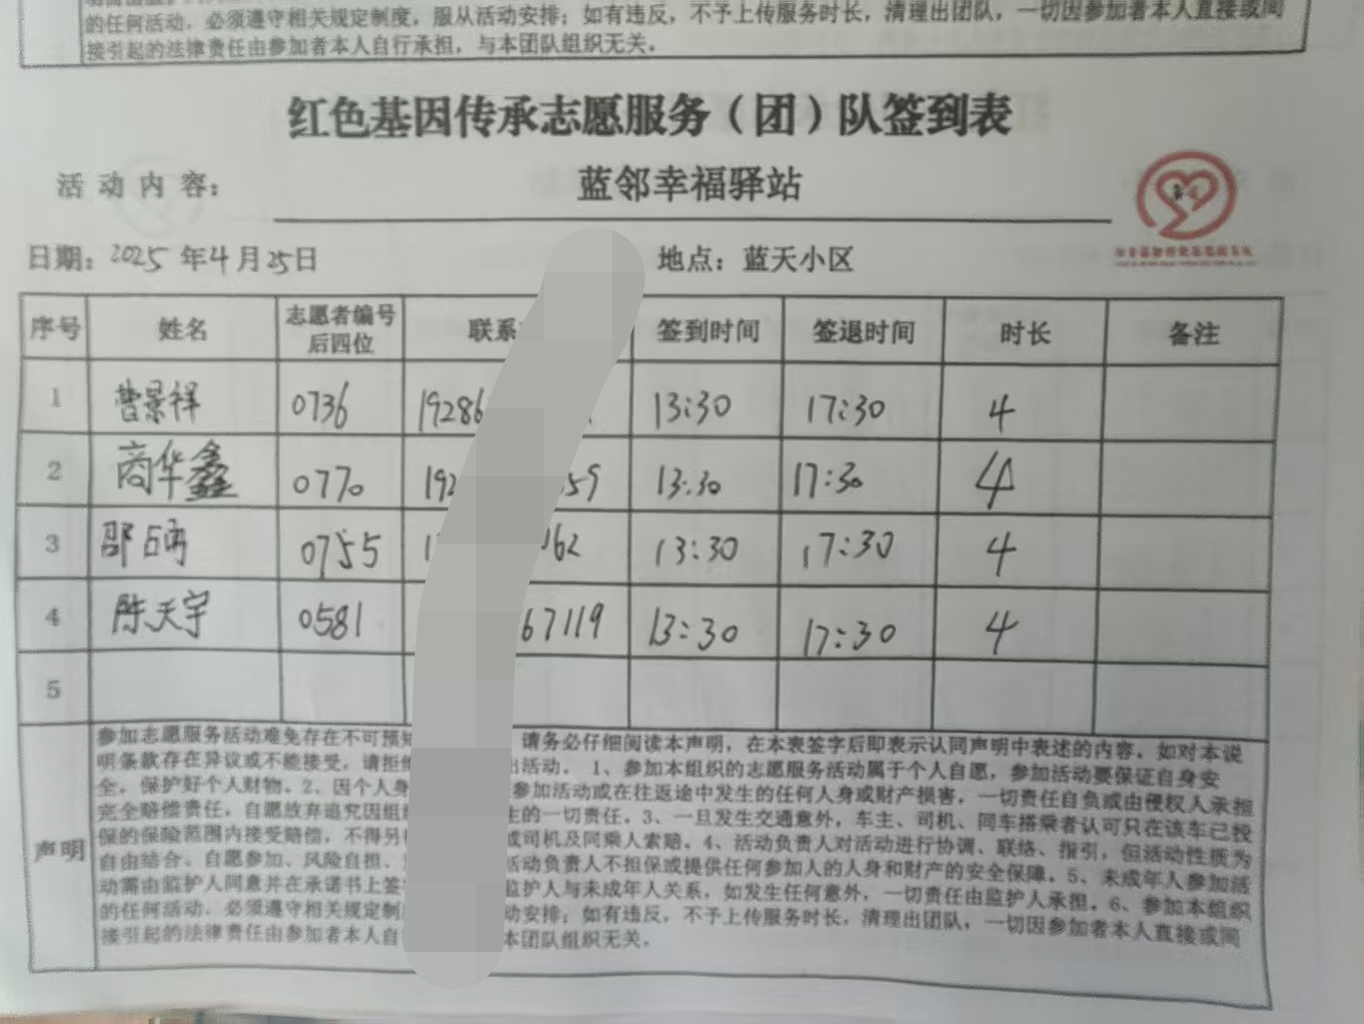 的任何活动，必须遵守相关规定制度，服从活动安排；如有违反，不予上传服务时长，清理出团队，一切因参加者本人直接或间
接引起的法律责任由参加者本人自行承担，与本团队组织无关。
红色基因传承志愿服务（团）队签到表
活动内容： 蓝邻幸福驿站
日期：2025年4月25日 地点：蓝天小区
序号 姓名 志愿者编号后四位 联系 签到时间 签退时间 时长 备注
1 曹景祥 0736 19286 13:30 17:30 4
2 商华鑫 0770 192 59 13:30 17:30 4
3 邵 0755 1 62 13:30 17:30 4
4 陈天宇 0581 67119 13:30 17:30 4
5
声明
参加志愿服务活动难免存在不可预 请务必仔细阅读本声明，在本表签字后即表示认同声明中表述的内容，如对本说
明条款存在异议或不能接受，请拒 出活动。1、参加本组织的志愿服务活动属于个人自愿，参加活动要保证自身安
全，保护好个人财物。2、因个人身 参加活动或在往返途中发生的任何人身或财产损害，一切责任自负或由侵权人承担
完全赔偿责任，自愿放弃追究因组 生的一切责任。3、一旦发生交通意外，车主、司机、同车搭乘者认可只在该车已投
保的保险范围内接受赔偿，不得另 或司机及同乘人索赔。4、活动负责人对活动进行协调、联络、指引，但活动性质为
自由结合、自愿参加、风险自担、 活动负责人不担保或提供任何参加人的人身和财产的安全保障。5、未成年人参加活
动需由监护人同意并在承诺书上签 监护人与未成年人关系，如发生任何意外，一切责任由监护人承担。6、参加本组织
的任何活动，必须遵守相关规定制 动安排；如有违反，不予上传服务时长，清理出团队，一切因参加者本人直接或间
接引起的法律责任由参加者本人自 本团队组织无关。